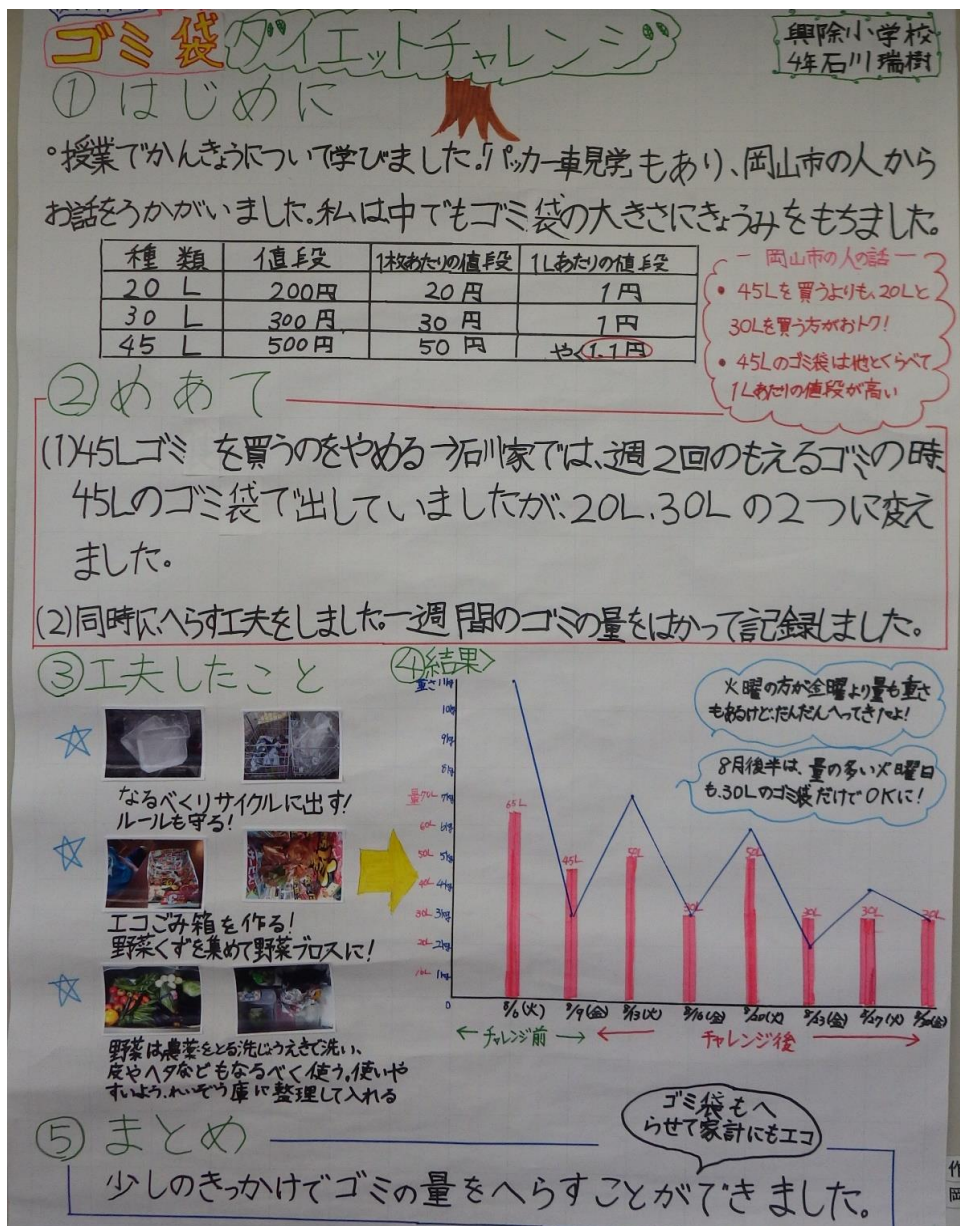 ゴミ袋ダイエットチャレンジ
興除小学校
4年石川瑞樹
①はじめに
°授業でかんきょうについて学びました。「パッカー車見学」もあり、岡山市の人から
お話をうかがいました。私は中でもゴミ袋の大きさにきょうみをもちました。
種類 値段 1枚あたりの値段 1Lあたりの値段
20L 200円 20円 1円
30L 300円 30円 1円
45L 500円 50円 やく1.1円
岡山市の人の話
・45Lを買うよりも、20Lと
30Lを買う方がおトク!
・45Lのゴミ袋は他とくらべて
1Lあたりの値段が高い
②めあて
(1)45Lゴミ を買うのをやめる→石川家では、週2回のもえるゴミの時、
45Lのゴミ袋で出していましたが、20L、30Lの2つに変え
ました。
(2)同時に、へらす工夫をしました。一週間のゴミの量をはかって記録しました。
③工夫したこと
なるべくリサイクルに出す!
ルールも守る!
エコごみ箱を作る!
野菜くずを集めて野菜ブロスに!
野菜は農薬をとる洗じょうえきで洗い、
皮やヘタなどもなるべく使う。使いや
すいよう、れいぞう庫に整理して入れる
④結果
火曜の方が金曜より量も重さ
もあるけど、だんだんへってきたよ!
8月後半は、量の多い火曜日
も、30Lのゴミ袋だけでOKに!
重さ11kg
10kg
9kg
8kg
量70L 7kg
60L 6kg
50L 5kg
40L 4kg
30L 3kg
20L 2kg
10L 1kg
0
65L 45L 50L 30L 50L 30L 30L 30L
8/6(火) 8/9(金) 8/13(火) 8/16(金) 8/20(火) 8/23(金) 8/27(火) 8/30(金)
←チャレンジ前→ ←チャレンジ後→
⑤まとめ
ゴミ袋もへ
らせて家計にもエコ
少しのきっかけでゴミの量をへらすことができました。
作
岡